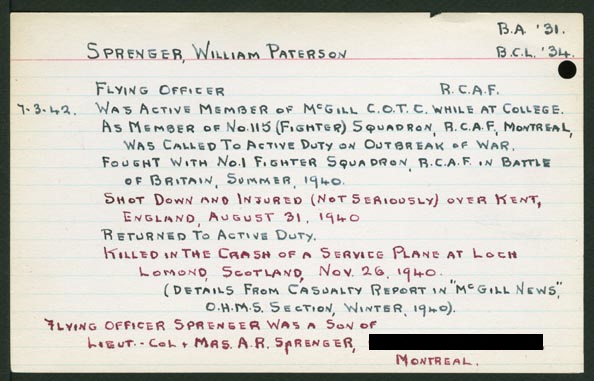 B.A. '31.
SPRENGER, WILLIAM PATERSON B.C.L. '34.
FLYING OFFICER R.C.A.F.
7-3-42. WAS ACTIVE MEMBER OF MCGILL C.O.T.C. WHILE AT COLLEGE.
AS MEMBER OF NO.115 (FIGHTER) SQUADRON, R.C.A.F., MONTREAL,
WAS CALLED TO ACTIVE DUTY ON OUTBREAK OF WAR.
FOUGHT WITH NO.1 FIGHTER SQUADRON, R.C.A.F. IN BATTLE
OF BRITAIN, SUMMER, 1940.
SHOT DOWN AND INJURED (NOT SERIOUSLY) OVER KENT,
ENGLAND, AUGUST 31, 1940
RETURNED TO ACTIVE DUTY.
KILLED IN THE CRASH OF A SERVICE PLANE AT LOCH
LOMOND, SCOTLAND, NOV. 26, 1940.
(DETAILS FROM CASUALTY REPORT IN "MCGILL NEWS",
O.H.M.S. SECTION, WINTER, 1940).
FLYING OFFICER SPRENGER WAS A SON OF
LIEUT.-COL + MRS. A.R. SPRENGER,
MONTREAL.